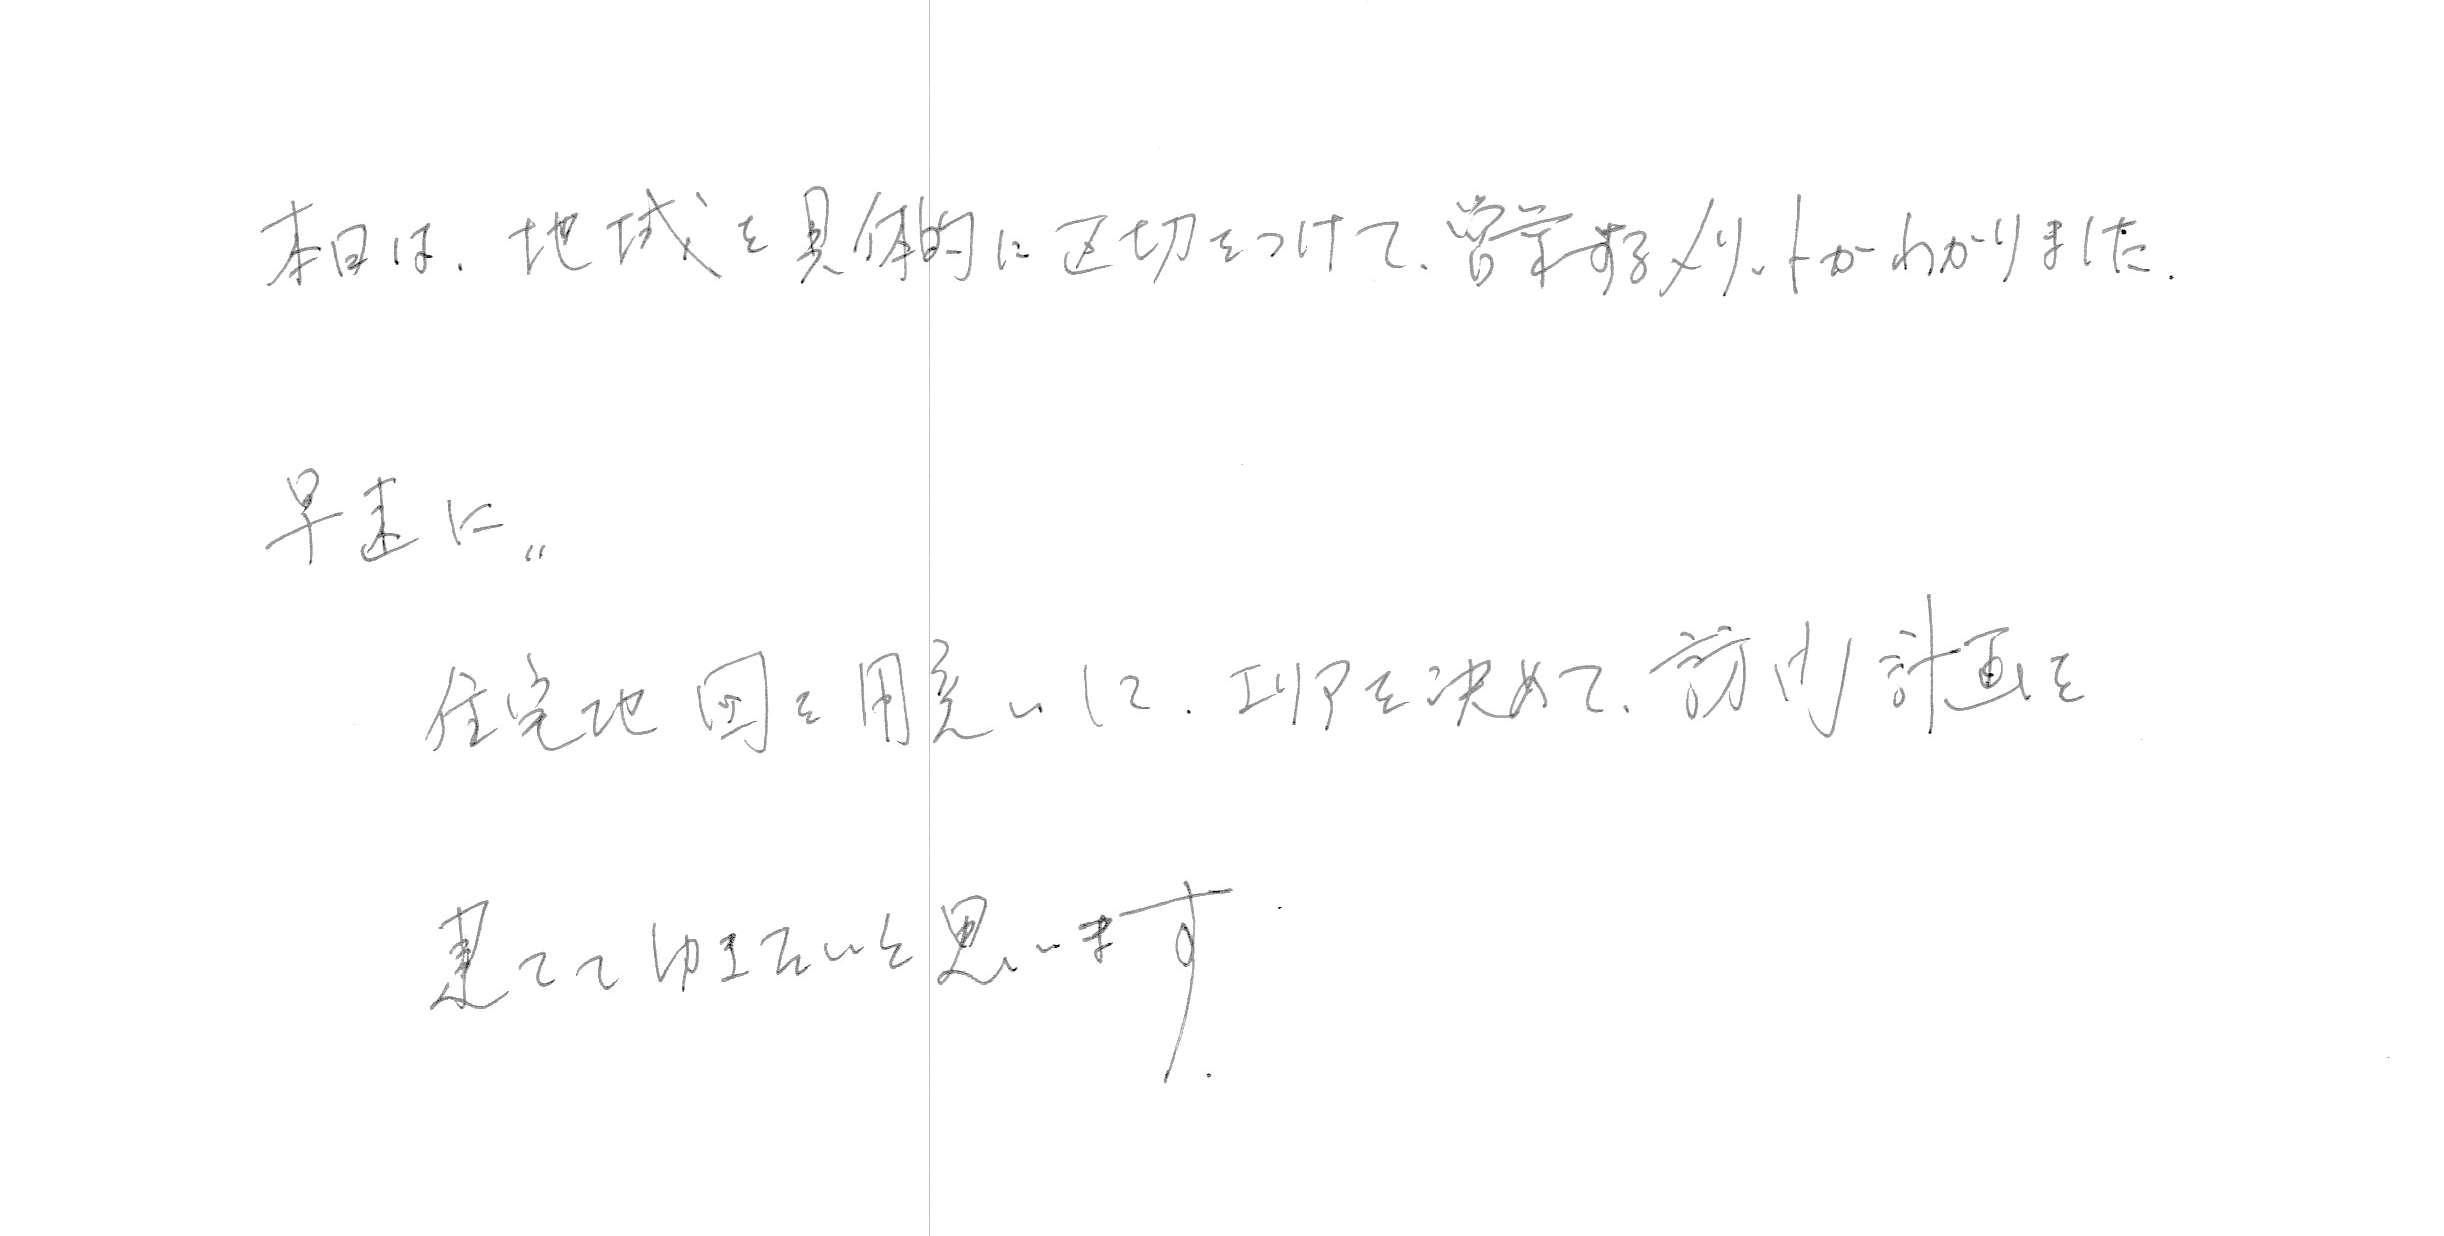 本日は、地域を具体的に区切をつけて、営業するメリットがわかりました.
早速に〃
住宅地図を用意いして、エリアを決めて、訪問計画を
建てて行きたいと思います.